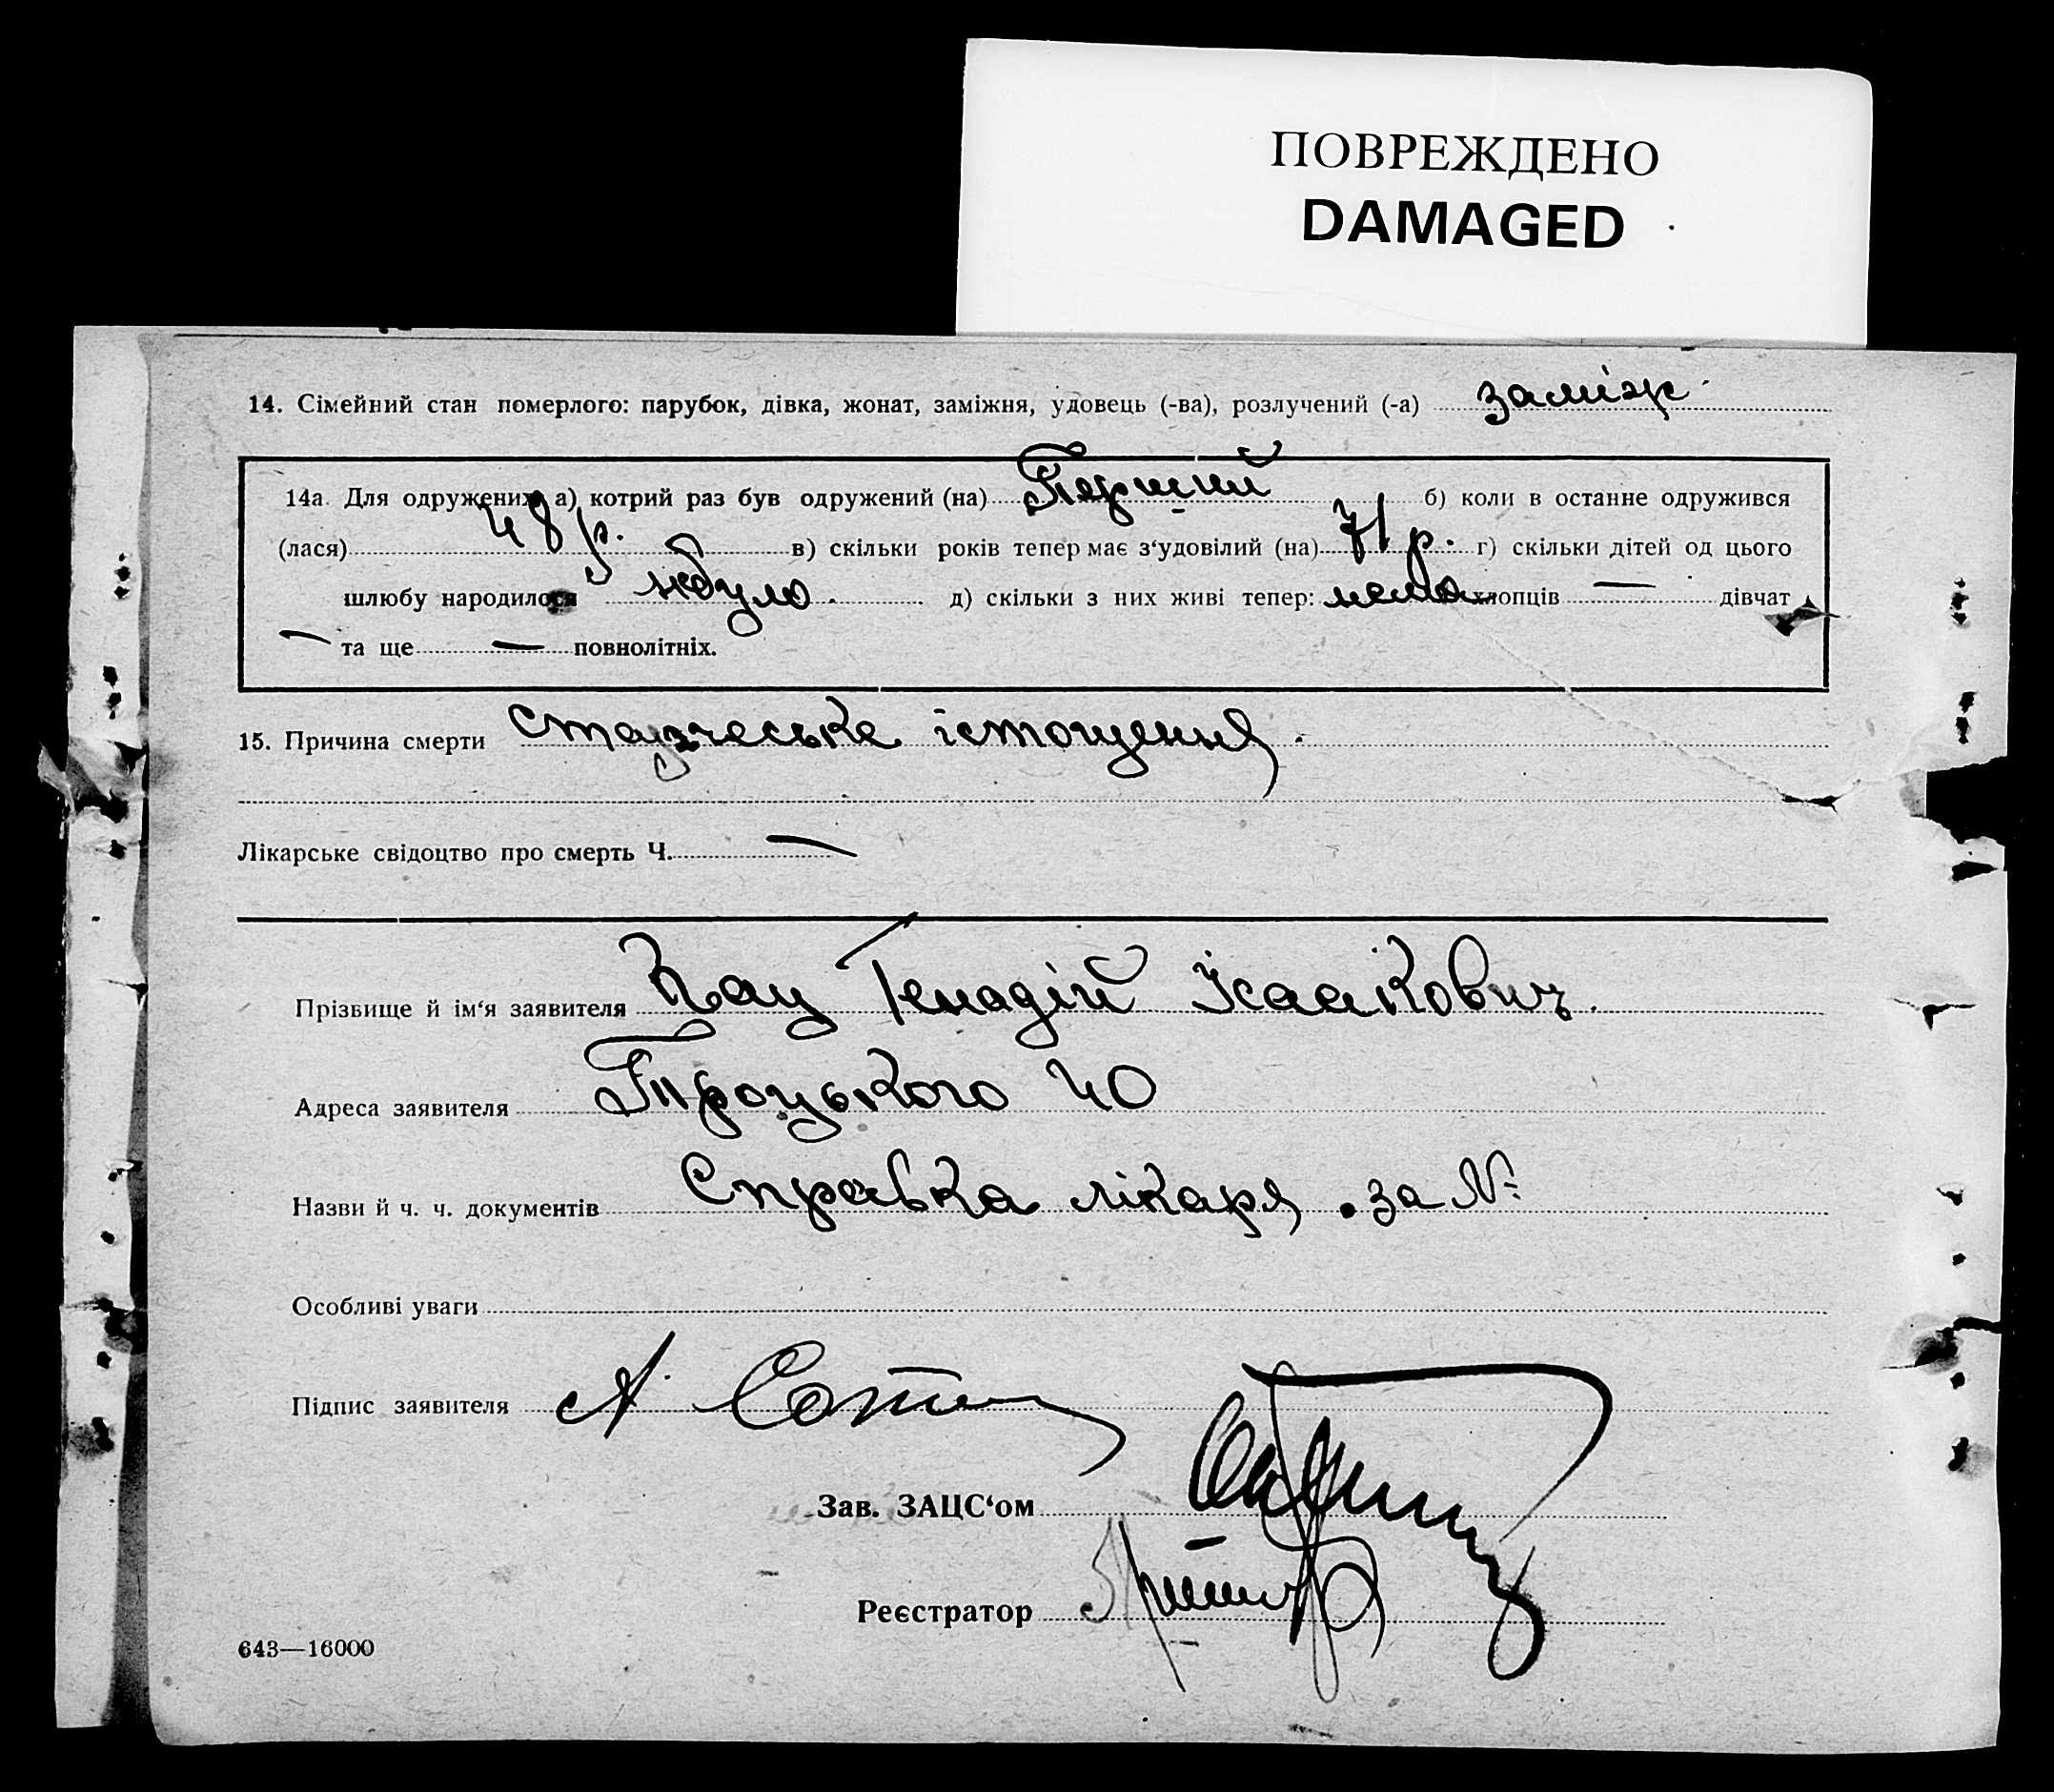 ПОВРЕЖДЕНО
DAMAGED
14. Сімейний стан померлого: парубок, дівка, жонат, заміжня, удовець (-ва), розлучений (-а) заміж
14а. Для одружених а) котрий раз був одружений (на) Перший б) коли в останне одружився
(лася) 48 р. в) скільки років тепер має з‘удовілий (на) 71 р. г) скільки дітей од цього
шлюбу народилося небуло. д) скільки з них живі тепер: нема хлопців — дівчат
— та ще — повнолітніх.
15. Причина смерти старческе істощення.
Лікарське свідоцтво про смерть Ч. —
Прізвище й ім‘я заявителя Кац Генадій Ісаакович.
Адреса заявителя Троцького 40
Назви й ч. ч. документів Справка лікаря. за №
Особливі уваги
Підпис заявителя А.
Зав. ЗАЦС‘ом
Реєстратор
643—16000